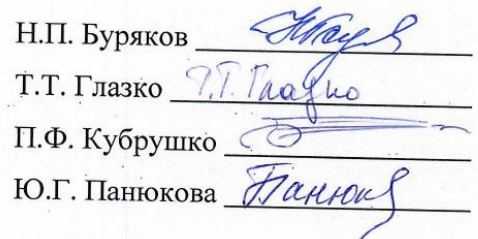 Н.П. Буряков
Т.Т. Глазко Т.Т. Глазко
П.Ф. Кубрушко
Ю.Г. Панюкова